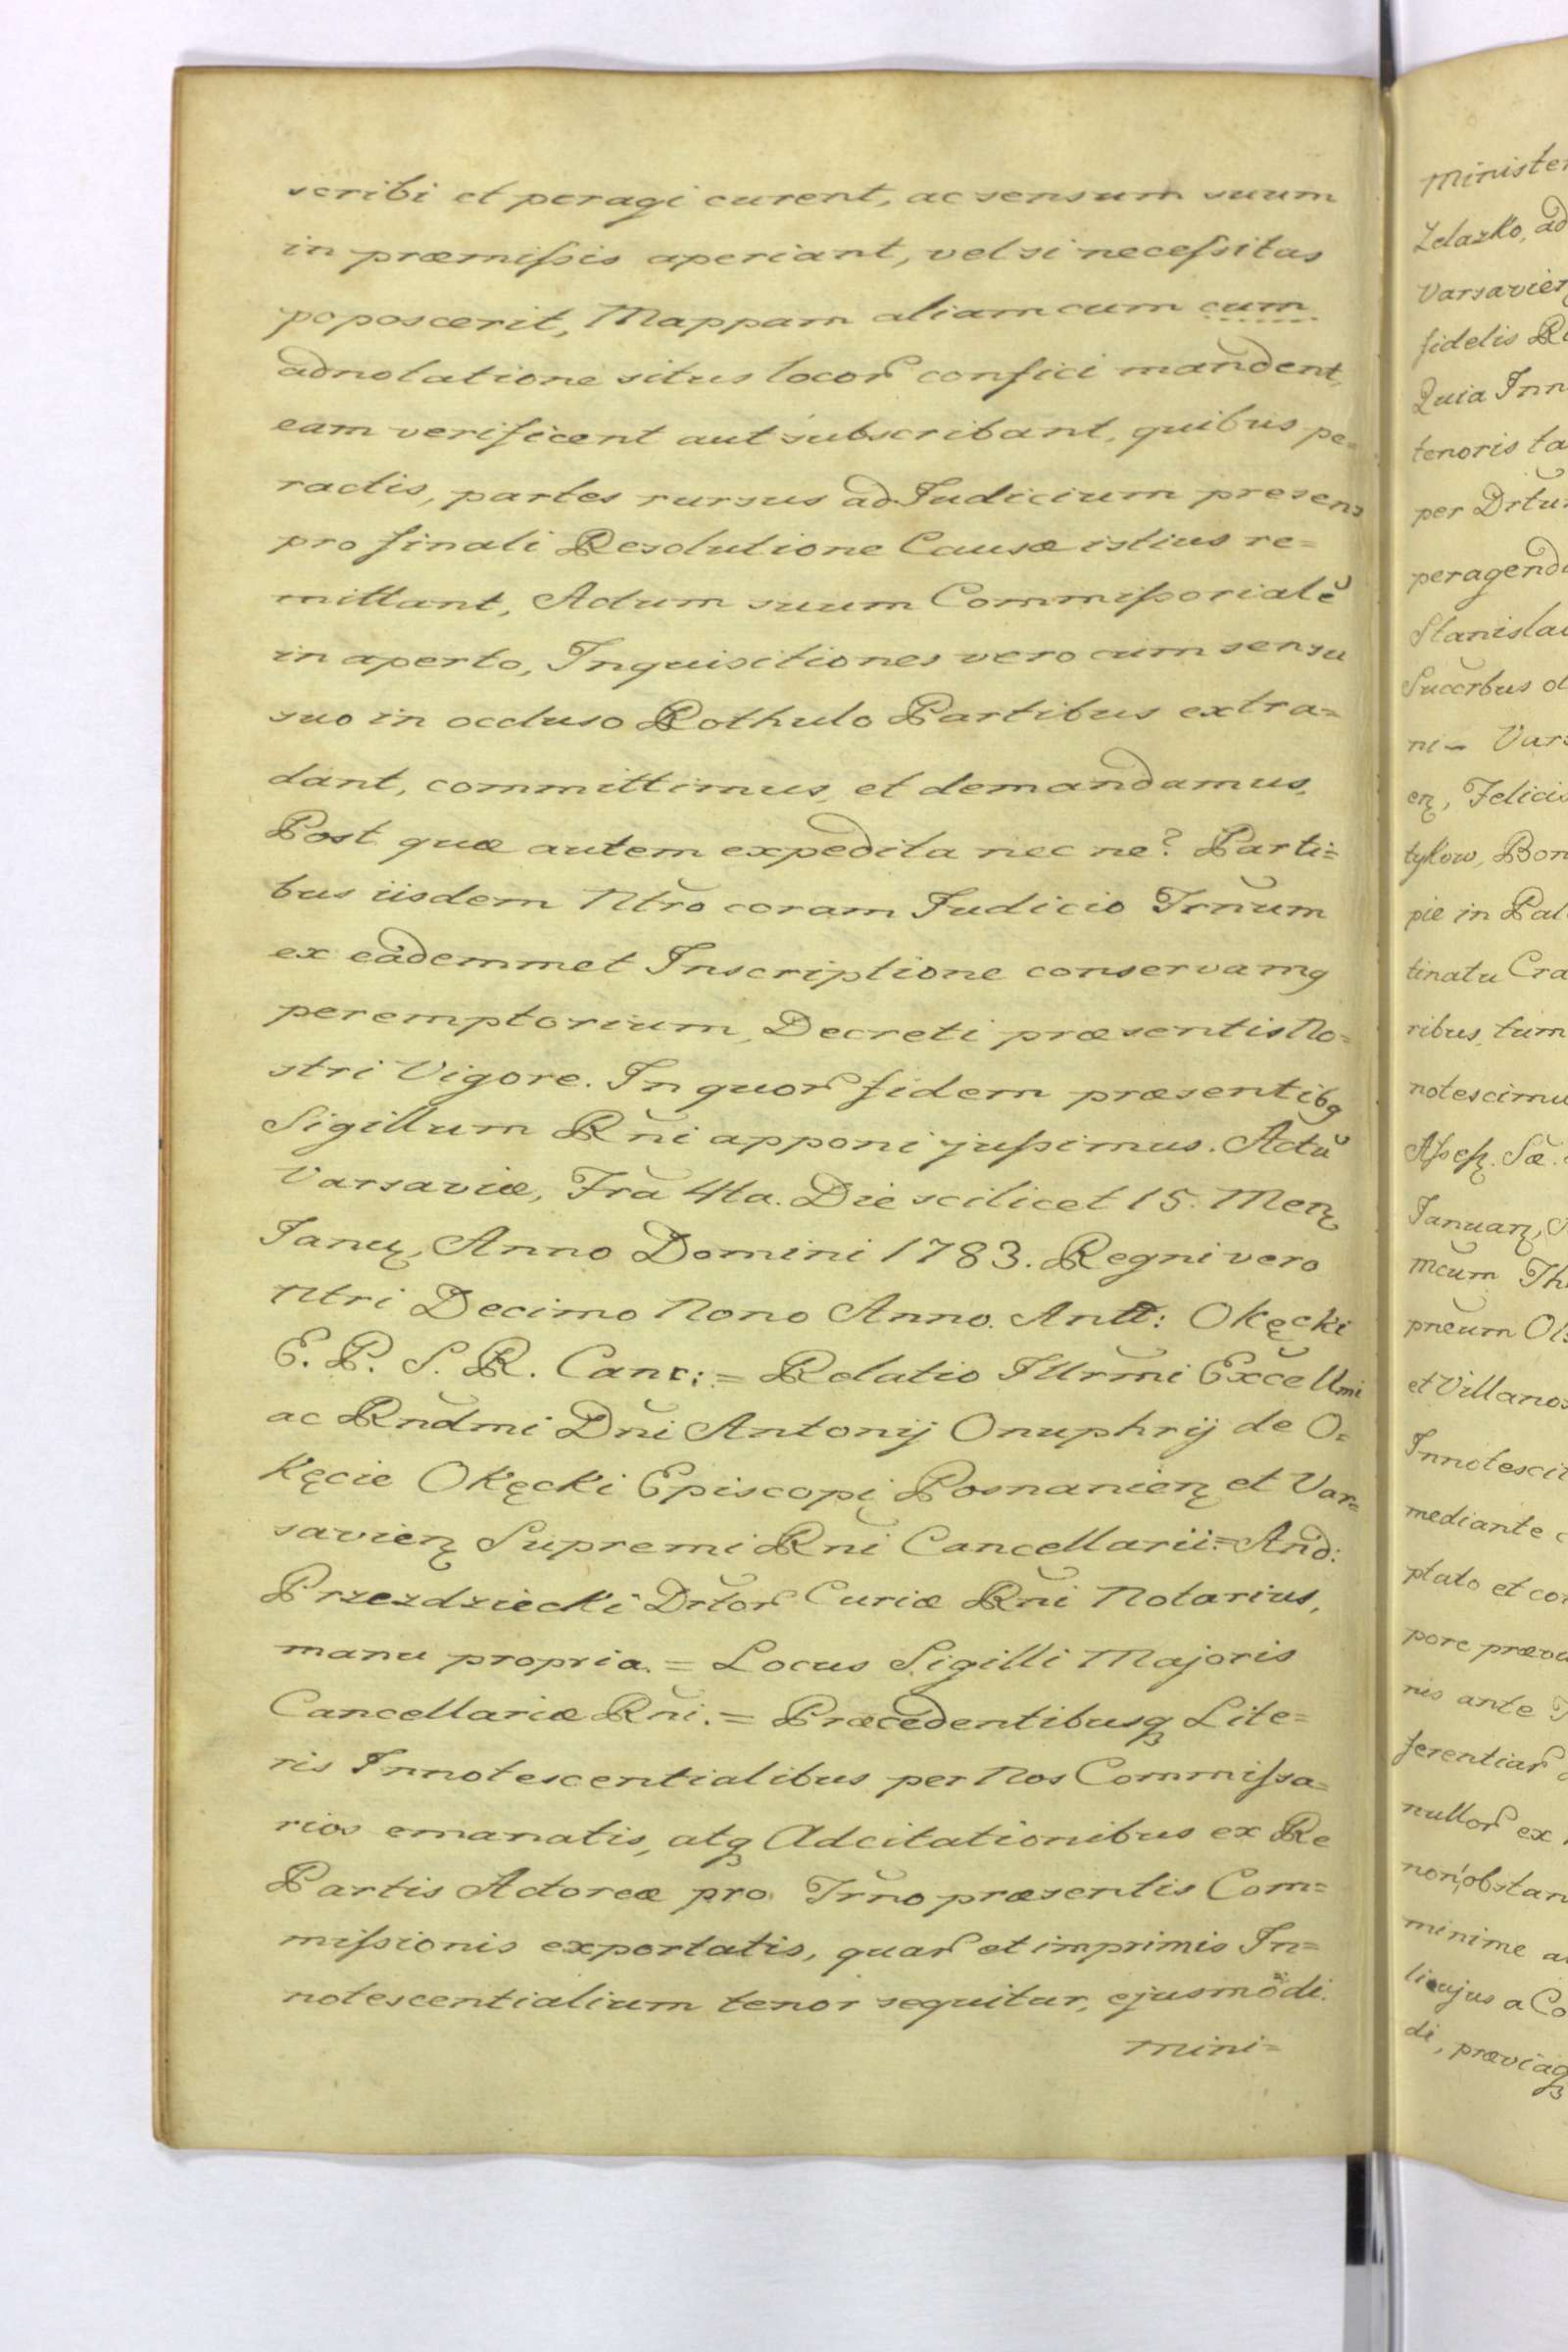 scribi et peragi curent, ac sensum suum
in præmiſsis aperiant, vel si neceſsitas
poposcerit, Mappam aliam cum cum
adnotatione situs locor̃ confici mandent,
eam verificent aut subscribant, quibus pe=
ractis, partes rursus ad Judicium presens
pro finali Resolutione Causæ istius re=
mittant, Actum suum Commiſsorialĕ
in aperto, Inquisitiones vero cum sensu
suo in occluso Rothulo Partibus extra=
dant, committimus, et demandamus,
Post quæ autem expedita nec ne? Parti=
bus iisdem Ntr̆o coram Judicio Trn̆um
ex eâdemmet Inscriptione conservamq
peremptorium, Decreti præsentis No=
stri Vigore. In quor̃ fidem præsentibq
Sigillum Rn̆i apponi juſsimus. Actŭ
Varsaviæ, Fr̆a 4ta. Die scilicet 15. Menʒ
Januʒ, Anno Domini 1783. Regni vero
Ntri Decimo Nono Anno. Antt: Okęcki
E. P. S. R. Canc: = Relatio Illrm̆i Excĕllmi
ac Rnd̆mi Dn̆i Antonij Onuphrij de O=
kęcie Okęcki Episcopi Posnanienʒ et Var=
savienʒ Supremi Rn̆i Cancellarii = And:
Przezdziecki Drt̆or̃ Curiæ Rn̆i Notarius,
manu propria. = Locus Sigilli Majoris
Cancellariæ Rn̆i. = Præcedentibusqʒ Lite=
ris Innotescentialibus per Nos Commiſsa=
rios emanatis, atqʒ Adcitationibus ex Re
Partis Actoreæ pro Trn̆o præsentis Com=
miſsionis exportatis, quar̃ et imprimis In=
notescentialium tenor sequitur, ejusmŏdi.
mini=
Minister
Zelazko, ad
Varsavien
fidelis R
Quia Inn
tenoris ta
per Drt̆u
peragend
Stanisla
Succ̆rbus o
ni - Var
enʒ, Felicis
tykow, Bon
pie in Pal
tinatu Cra
ribus, tum
notescimu
Aſseſʒ. Sæ.
Januarʒ,
Mc̆um Th
pn̆eum Ol
et Villanos
Innotescit
mediante
plato et co
pore præv
nis ante
ferentiar̃
nullor̃ ex
non, obstan
minime a
licujus a Co
di, præviaqʒ